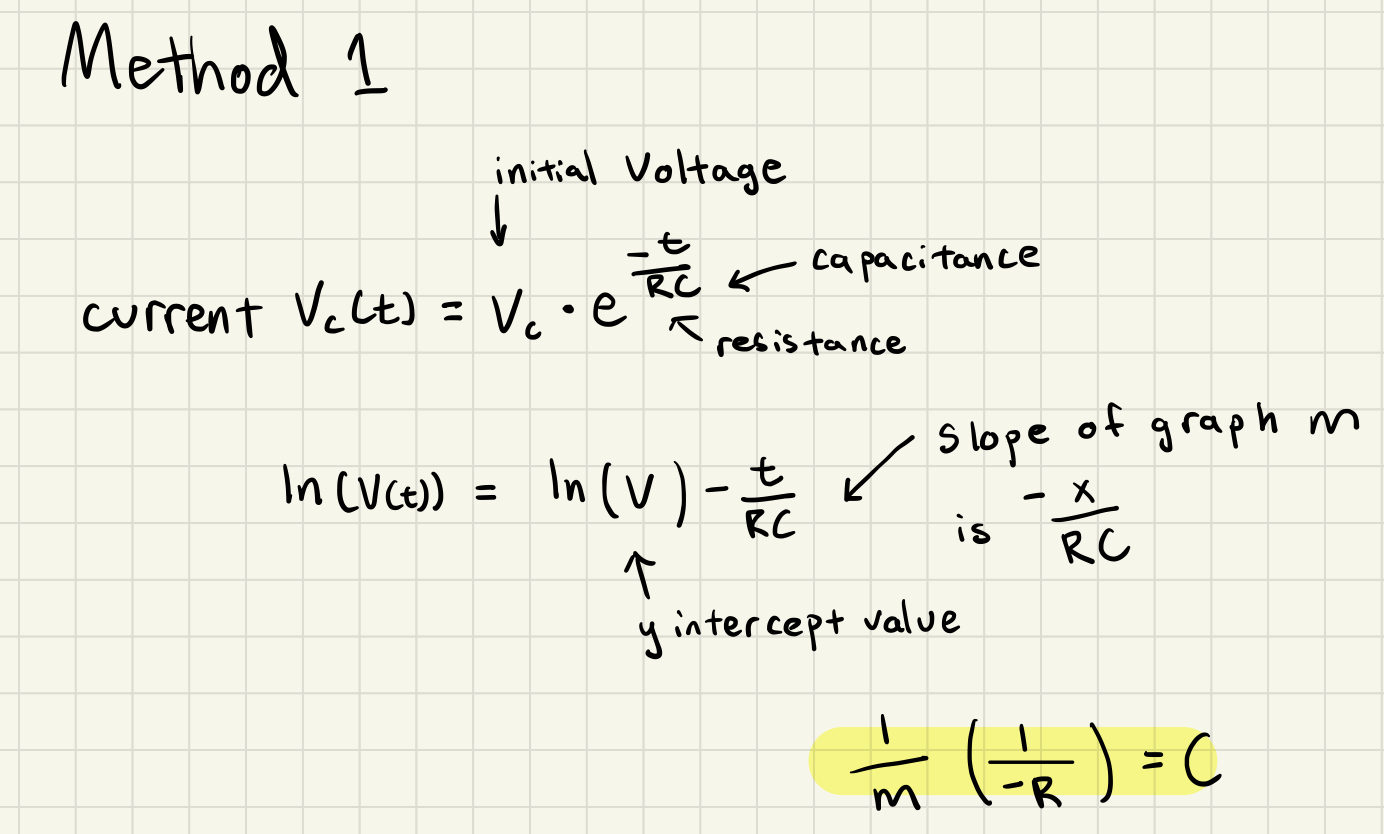 Method 1
initial Voltage
↓
current V_c(t) = V_c · e^(-t/RC) ← capacitance
↖ resistance
ln(V(t)) = ln(V) - t/RC ↙ slope of graph m
is - x/RC
↑
y intercept value
1/m (1/-R) = C